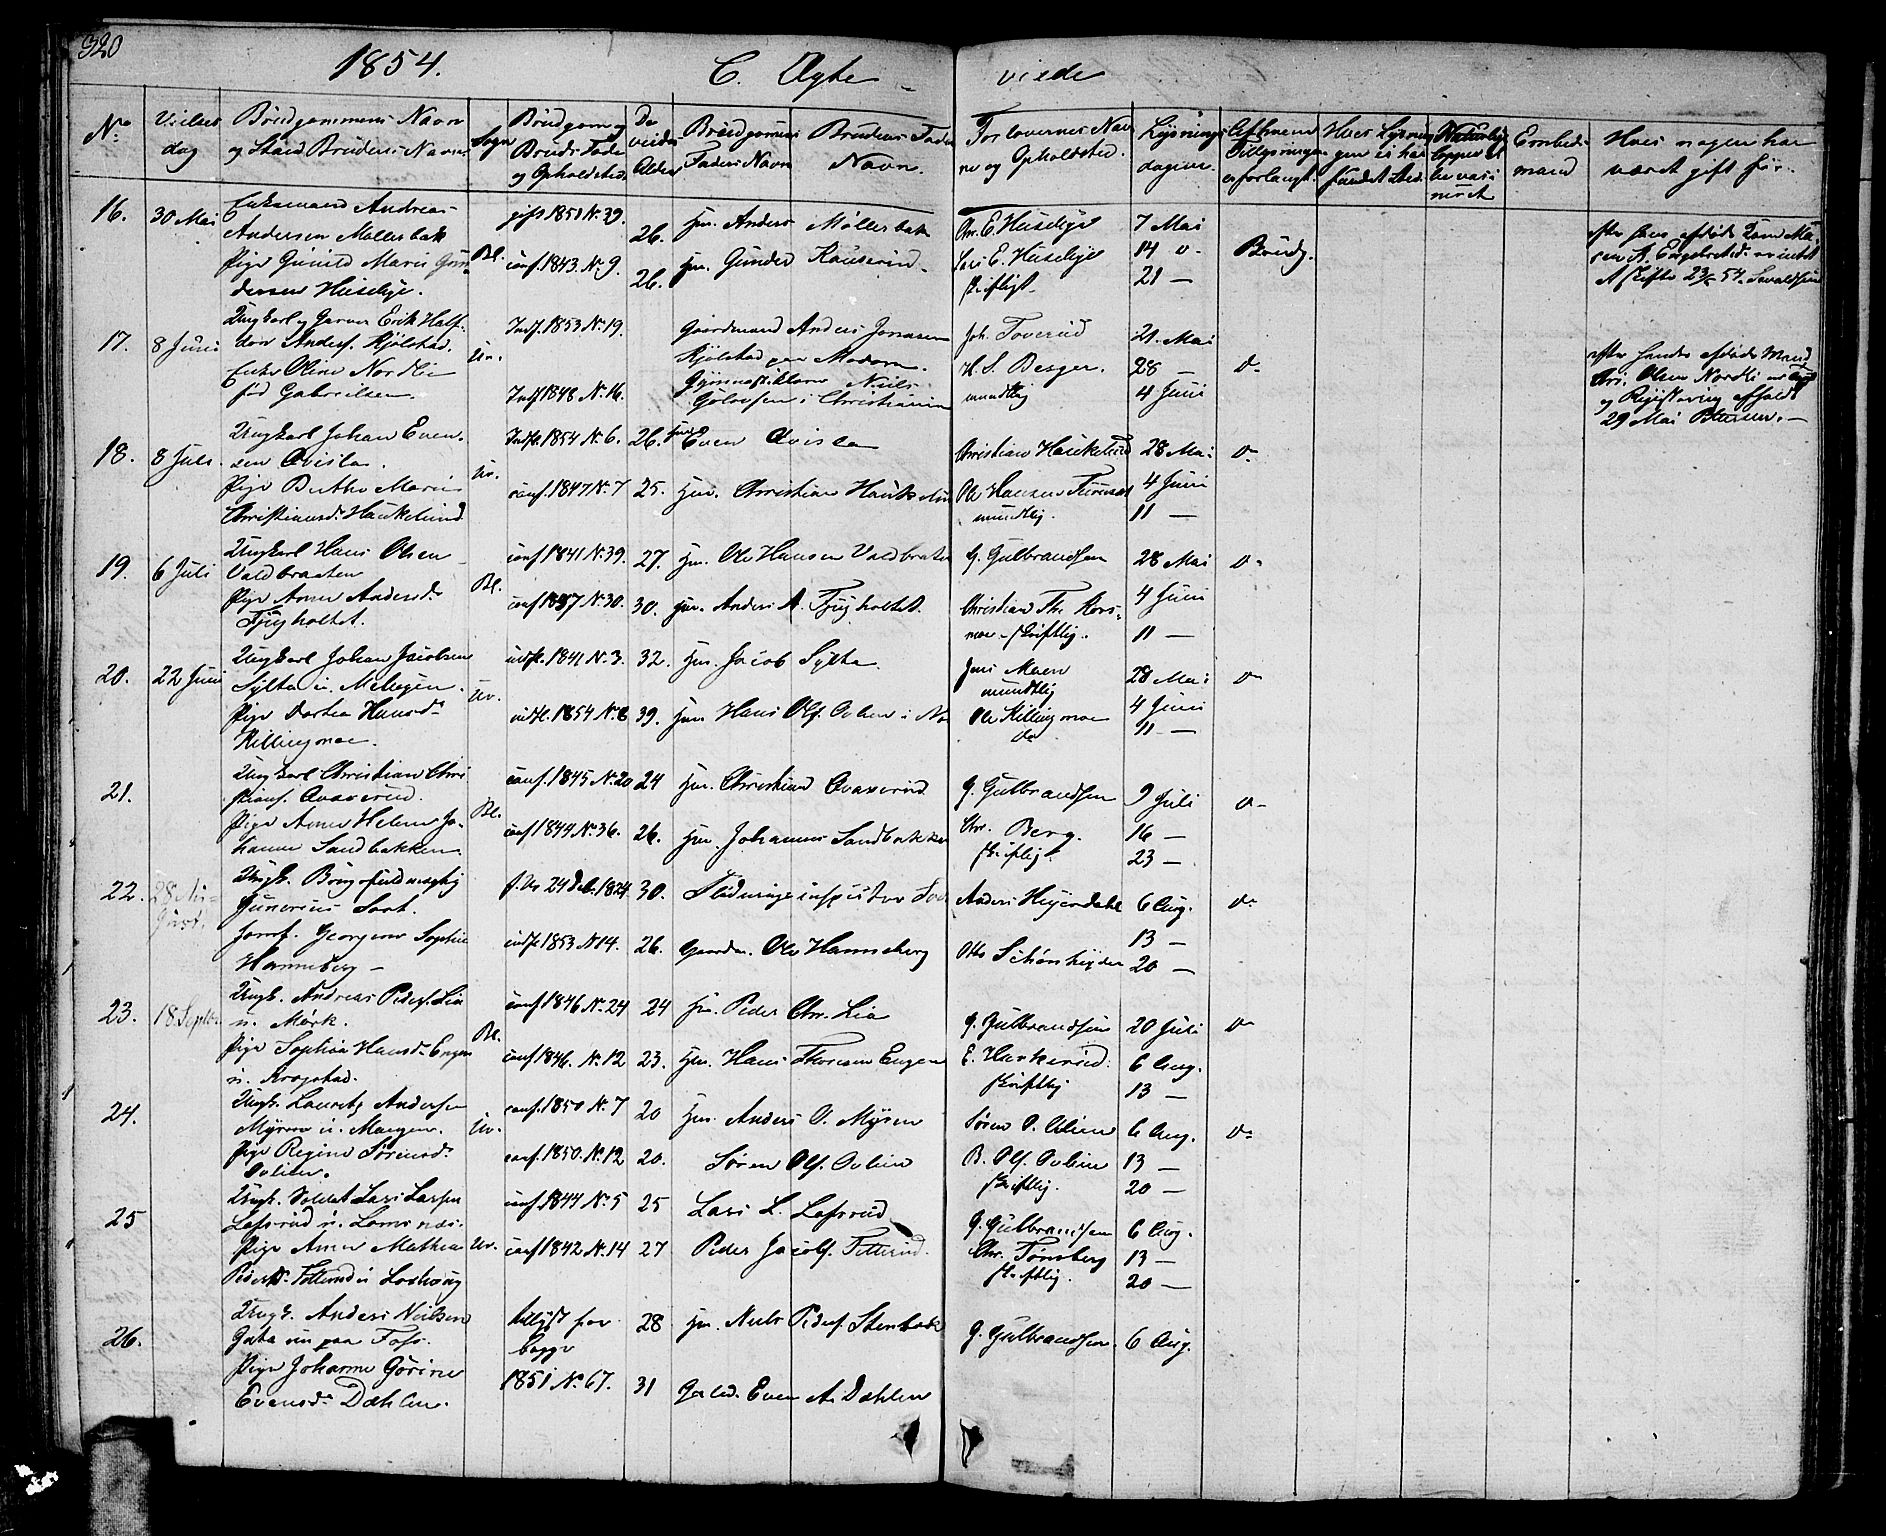 320
1854.
C. Ægte viede
No
Vielses
dag
Brudgommens Navn
og Stand Brudens Navn
Sogn
Brudgom og
Bruds Føde
og Opholdsted
De
viedes
Alder
Brudgommens
Faders Navn
Brudens Faders
Navn
Forlovernes Nav
ne og Opholdsted.
Lysnings
dagene
Af hvem
Tillysningen
er forlangt.
Hvor Lysnin
gen ei har
fundet Sted.
Naturlige
Kopper el
ler vaxi
neret
Embeds
mand
Hvis nogen har
været gift før.
16.
30 Mai
Enkemand Andreas
Andersen Møllerbak
Pige Gunild Marie Gun
dersen Huseliye.
Bl.
gift 1851 No. 39.
conf. 1843. No. 9.
26.
26.
Hm. Anders Møllerbak
Hm. Gunder Kauserud
Chr. E. Huselije
Lars E. Huselije
skriftligt
7 Mai
14 "
21 —
Brudg.
efter hans afdøde Kone Ma-
ren A. Engebretsd.
Skifte 23/5 54.
17.
8 Juni
Ungkarl og Garver Erik Half-
dan Anders. Kjølstad.
Enke Oline Nordlie
fød Gabrielsen.
Ur.
Indf. 1853 No. 19.
Indf 1848 No. 16.
Gaardmand Anders Jonasen
Kjølstad paa Modum.
Niels
i Christiania
Joh. Toverud
H. S. Berger.
mundtlig
21. Mai
28 —
4 Juni
do
efter hendes afdøde Mand
Chr. Olsen Nordli
og Registrering afholdt
29 Mai
18.
8 Juli.
Ungkarl Johan Even-
sen Qvisla.
Pige Berthe Marie
Christiansdr. Haukelund
Ur.
Indf. 1854 No. 6.
conf. 1847 No. 7
26.
25.
Even Qvisla
Hm. Christian Haukelund
Christian Haukelund
Ole Hansen
mundtlig.
28 Mai
4 Juni
11 —
do
19.
6 Juli
Ungkarl Hans Olsen
Valdbraaten
Pige Anne Andersdr.
Tjugholtet.
Bl.
conf 1841 No. 39.
conf 1837 No. 30.
27.
30.
Hm. Ole Hansen Valdbraaten
Hm. Anders A. Tjugholtet.
G. Gulbrandsen
Christian Th. Kors-
moe - skriftlig.
28 Mai
4 Juni
11 —
do
20.
22 Juni
Ungkarl Johan Jacobsen
Sylta
Pige Dorthea Hansdr.
Killingmoe.
Ur.
indf. 1841 No. 3.
indf. 1854 No. 8
32.
39.
Hm. Jacob Sylta
Hm. Hans Ols.
Jens Moen
mundtlig
Ole Killingmoe
do
28 Mai
4 Juni
11 —
do
21.
Ungkarl Christian Chri
stians. Qvaverud.
Pige Anne Helene Jo-
hanne Sandbakken.
Bl.
conf. 1845 No. 20
conf 1844 No. 36.
24
26.
Hm. Christian Qvaverud
Hm. Johannes Sandbakken
G. Gulbrandsen
Chr. Berg.
skriftligt
9 Juli
16 —
23 —
do
22.
28 Au-
gust.
Ungk.
Junerius
Jomf. Georgine Sophie
Hanneberg —
24 Deb. 1824
indf. 1853 No 14.
30.
26.
Flødningsinspecteur
Gaardm. Ole Hanneberg
Anders Heyerdahl
Otto Schønheyder
6 Aug.
13 —
20 —
do
23.
18 Septbr.
Ungk. Andreas Peders. Lia
n. Mørk.
Pige Sophia Hansdr. Engen
n. Krogstad.
Bl.
conf 1846 No. 24
conf 1846. No. 12
24
23.
Hm. Peder Chr. Lia
Hm. Hans Thoresen Engen
G. Gulbrandsen
E. Harkerud.
skriftlig
20 Juli
6 Aug.
13 —
do
24.
Ungk. Lauritz Andersen
Myren n. Moegen.
Pige Regine Sørensdr.
Ovlien.
Ur.
conf. 1850 No. 7
conf. 1850. No. 12
20
20.
Hm. Anders O. Mysen
Søren Ols. Ovlien
Søren O. Ovlien
B. Ols. Ovlien
skriftlig.
6 Aug.
13 —
20 —
do
25
Ungk. Soldat Lars Larsen
Lafsrud n. Lomsnæs.
Pige Anne Mathea
Pedersdr. Fetterud n.
Ur.
conf. 1844 No. 5
conf 1842 No. 14
25
27
Lars L. Lafsrud
Peder Jacobs. Fetterud.
G. Gulbrandsen
Chr. Tønsberg
skriftlig.
6 Aug.
13 —
20 —
26.
Ungk. Anders Nielsen
Gata nu paa Foss.
Pige Johanne Gurine
Evensdr. Dæhlen.
Attest for
begge
1851 No. 67.
28
31
Hm. Niels Peders. Stenbak
Even A. Dæhlen
G. Gulbrandsen.
6 Aug.